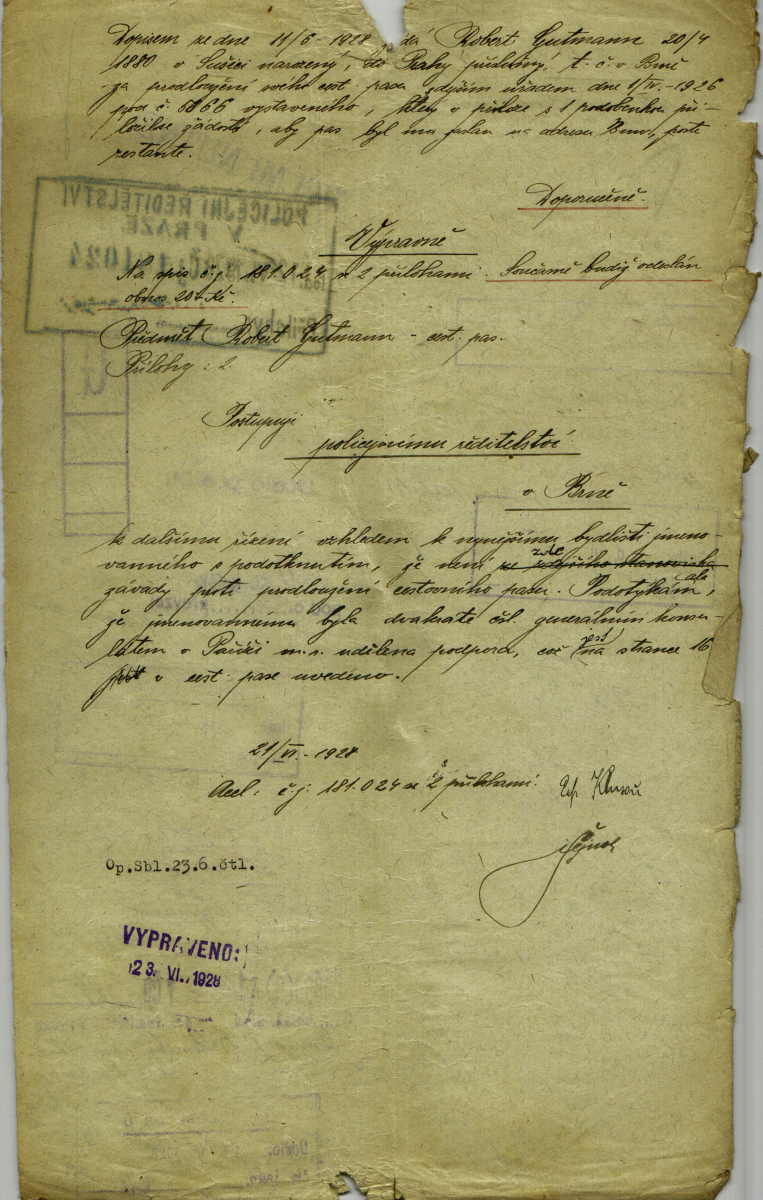 Dopisem ze dne 11/6 - 1928 žádá Robert Gutmann 20/4
1880 v Sušici narozený, do Prahy příslušný, t. č. v Brně
za prodloužení svého cest. pasu zdejším úřadem dne 1/IV. - 1926
pod č. 6865 vystaveného, který v příloze s 1 podobenkou při-
ložil se žádostí, aby pas byl mu zaslán na adresu Brno, poste
restante.
Doporučeně.
POLICEJNÍ ŘEDITELSTVÍ
V PRAZE
Výpravně
Na spis č. j. 181.024 s 2 přílohami. Současně budiž odeslán
obnos 20 Kč.
Předmět: Robert Gutmann - cest. pas.
Přílohy: 2
Postupuji
policejnímu ředitelství
v Brně
k dalšímu řízení vzhledem k nynějšímu bydlišti jmeno-
vanného s podotknutím, že není zde ze zdejšího stanoviska
závady proti prodloužení cestovního pasu. Podotýkám ale,
že jmenovannému byla dvakráte čsl. generálním konsu-
látem v Paříži m. r. udělena podpora, což jest na straně 16
v cest. pase uvedeno.
21/VI. - 1928
Acel: č. j. 181.024 se 2 přílohami.
Op.Sbl.23.6.čtl.
VYPRAVENO:
23. VI. 1928